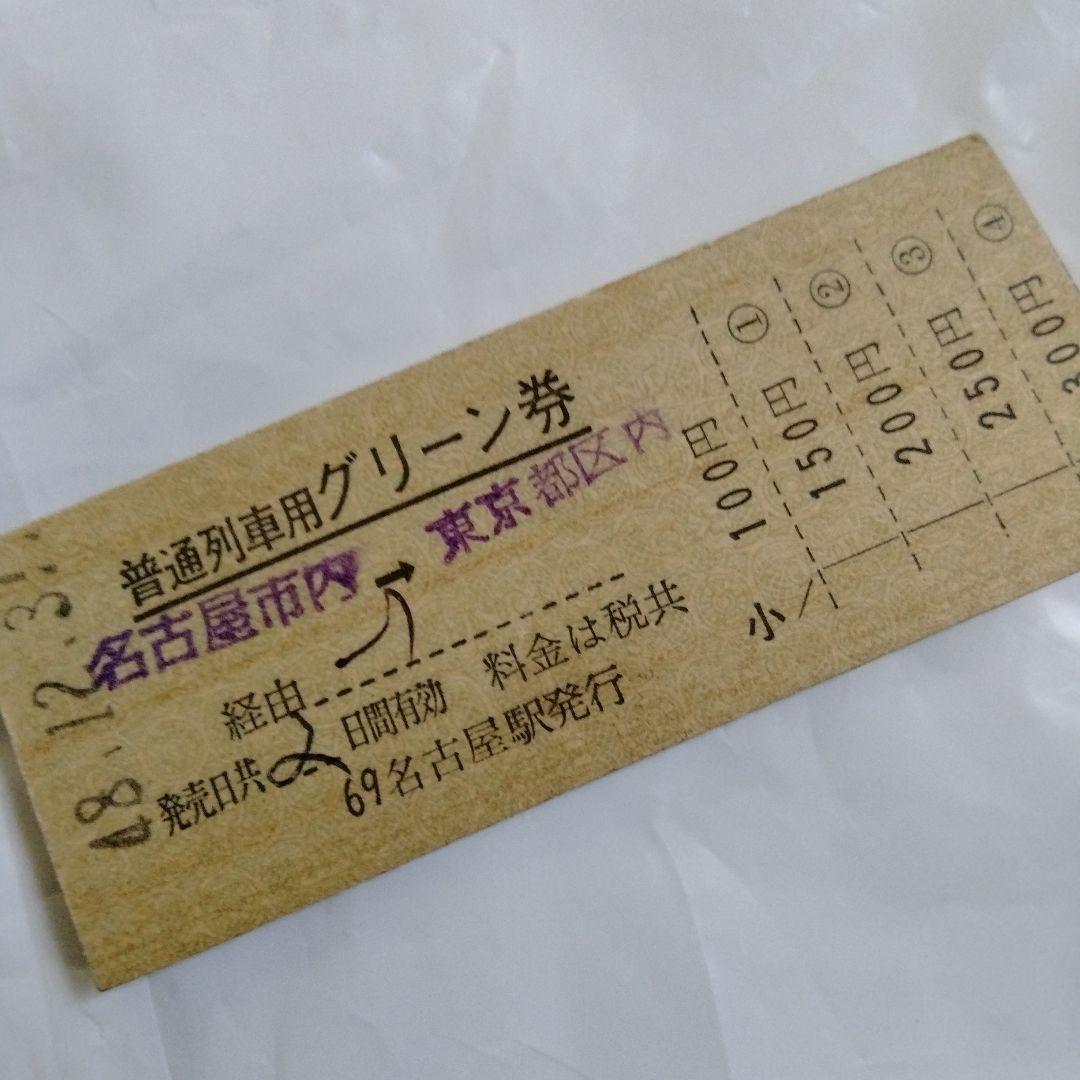 普通列車用グリーン券
名古屋市内 → 東京都区内
経由
発売日共2日間有効 料金は税共
69名古屋駅発行
48.12.31
100円 ①
150円 ②
200円 ③
250円 ④
300円
小